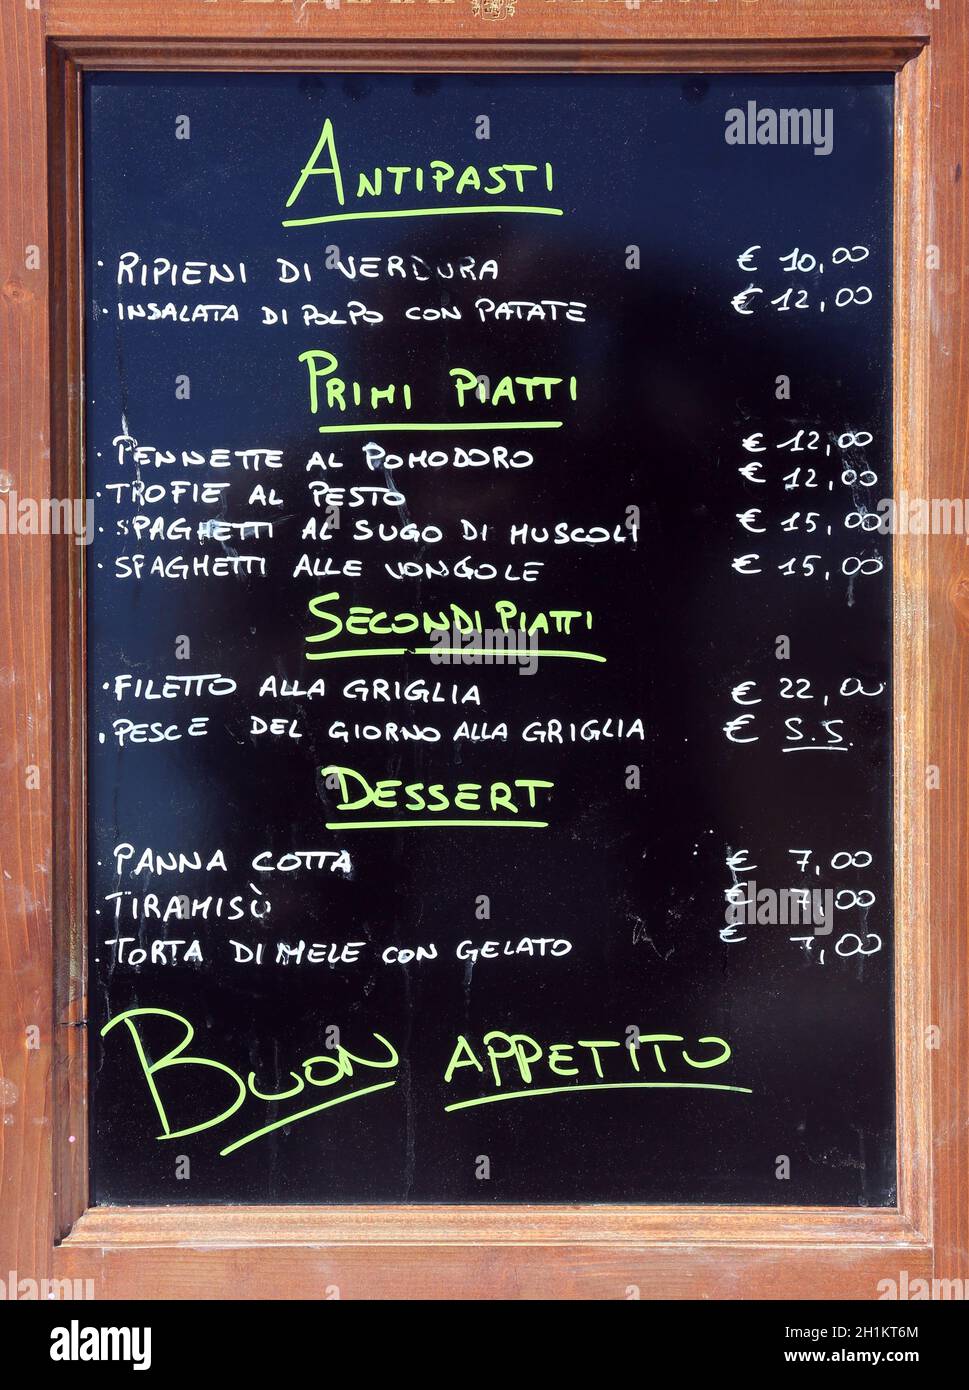 ANTIPASTI
· RIPIENI DI VERDURA € 10,00
· INSALATA DI POLPO CON PATATE € 12,00
PRIMI PIATTI
· PENNETTE AL POMODORO € 12,00
· TROFIE AL PESTO € 12,00
· SPAGHETTI AL SUGO DI MUSCOLI € 15,00
· SPAGHETTI ALLE VONGOLE € 15,00
SECONDI PIATTI
· FILETTO ALLA GRIGLIA € 22,00
· PESCE DEL GIORNO ALLA GRIGLIA € S.S.
DESSERT
· PANNA COTTA € 7,00
· TIRAMISÙ € 7,00
· TORTA DI MELE CON GELATO € 7,00
BUON APPETITO
alamy
Image ID: 2H1KT6M
www.alamy.com